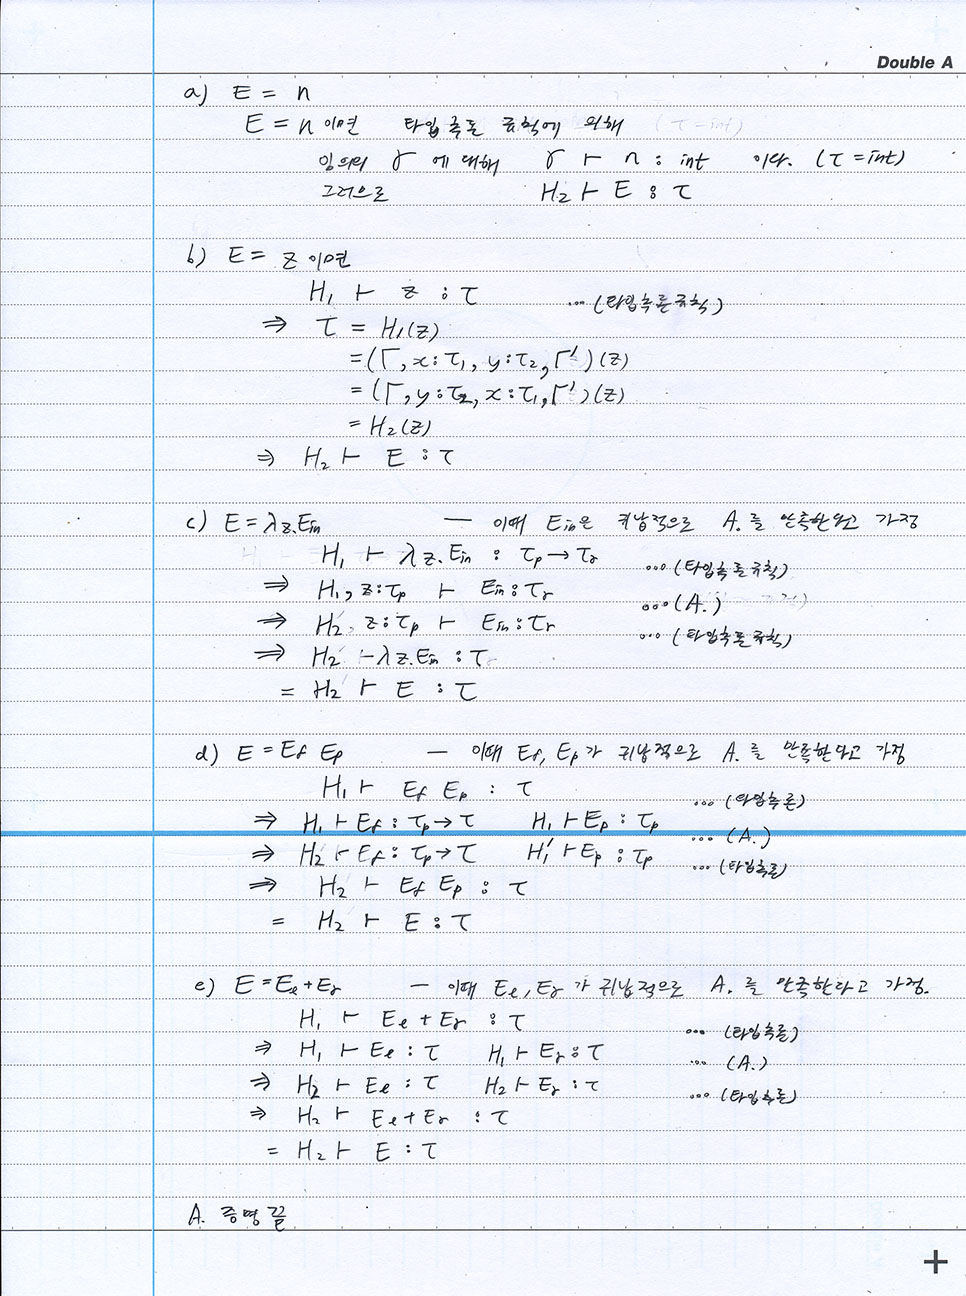 Double A
a) E = n
E = n 이면 타입추론 규칙에 의해 (τ-int)
임의의 γ에 대해 γ ⊢ n : int 이다. (τ = int)
그러므로 H₂ ⊢ E : τ
b) E = z 이면
H₁ ⊢ z : τ ... (타입추론규칙)
⇒ τ = H₁(z)
= (Γ, x:τ₁, y:τ₂, Γ')(z)
= (Γ, y:τ₂, x:τ₁, Γ')(z)
= H₂(z)
⇒ H₂ ⊢ E : τ
c) E = λz.Ein — 이때 Ein은 귀납적으로 A.를 만족한다고 가정
H₁ ⊢ λz.Ein : τp → τr ... (타입추론규칙)
⇒ H₁, z:τp ⊢ Ein : τr ... (A.)
⇒ H₂', z:τp ⊢ Ein : τr ... (타입추론규칙)
⇒ H₂' ⊢ λz.Ein : τ
= H₂' ⊢ E : τ
d) E = Ef Ep — 이때 Ef, Ep가 귀납적으로 A.를 만족한다고 가정
H₁ ⊢ Ef Ep : τ ... (타입추론)
⇒ H₁ ⊢ Ef : τp → τ H₁ ⊢ Ep : τp ... (A.)
⇒ H₂' ⊢ Ef : τp → τ H₁' ⊢ Ep : τp ... (타입추론)
⇒ H₂ ⊢ Ef Ep : τ
= H₂ ⊢ E : τ
e) E = Eℓ + Er — 이때 Eℓ, Er가 귀납적으로 A.를 만족한다고 가정.
H₁ ⊢ Eℓ + Er : τ ... (타입추론)
⇒ H₁ ⊢ Eℓ : τ H₁ ⊢ Er : τ ... (A.)
⇒ H₂ ⊢ Eℓ : τ H₂ ⊢ Er : τ ... (타입추론)
⇒ H₂ ⊢ Eℓ + Er : τ
= H₂ ⊢ E : τ
A. 증명 끝